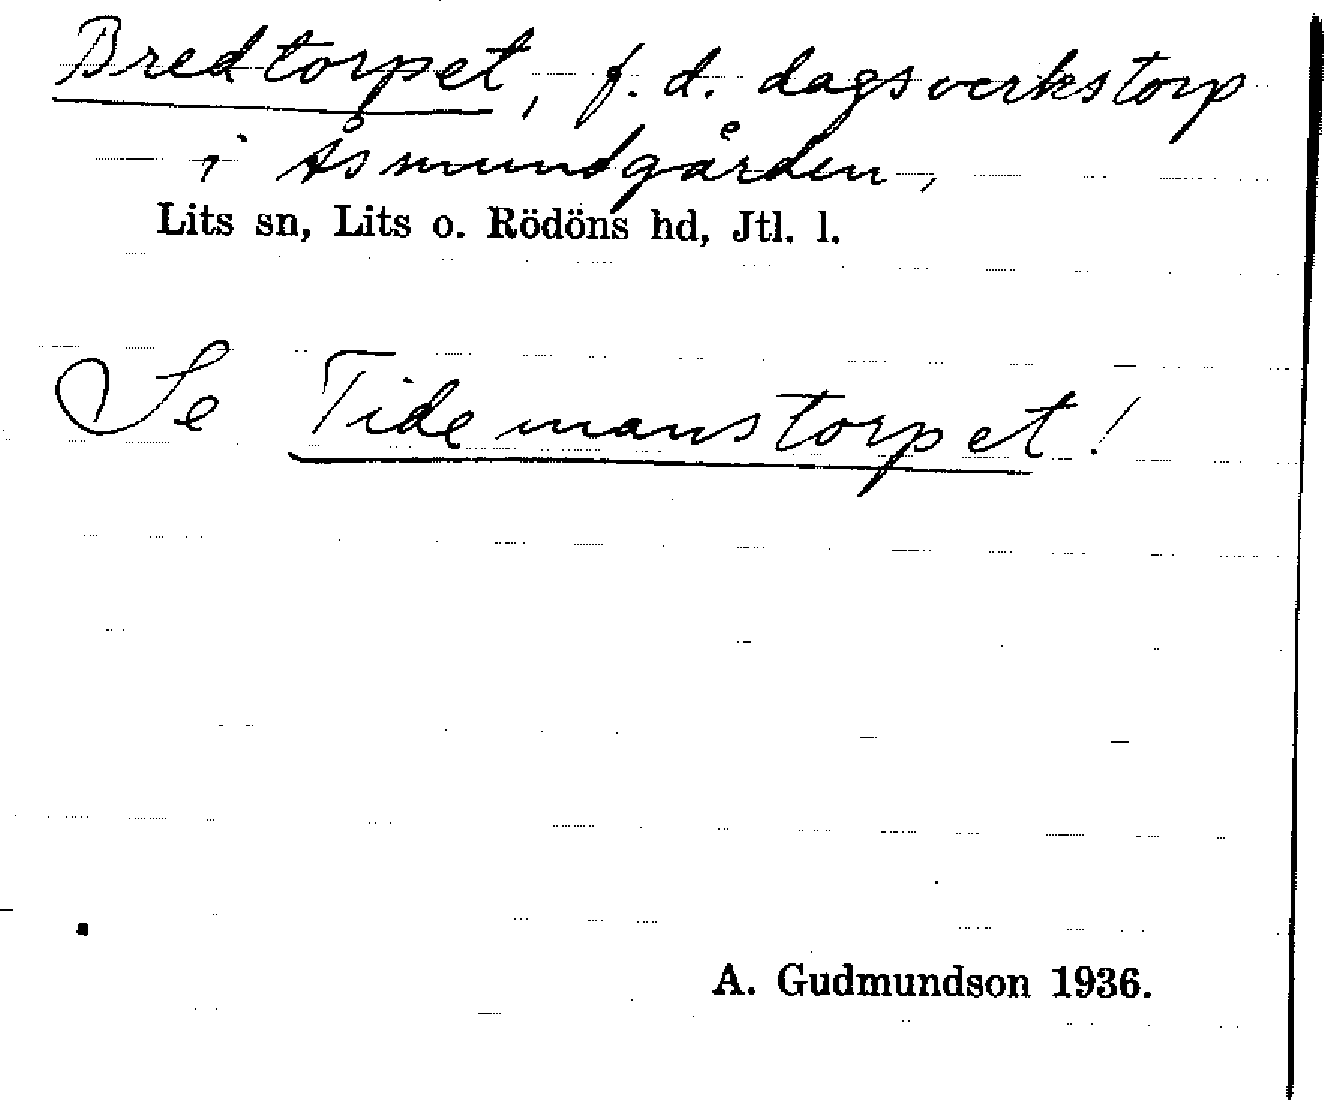 Bredtorpet, f. d. dagsverkstorp
i Åsmundgården,
Lits sn, Lits o. Rödöns hd, Jtl. l.
Se Tidemanstorpet!
A. Gudmundson 1936.